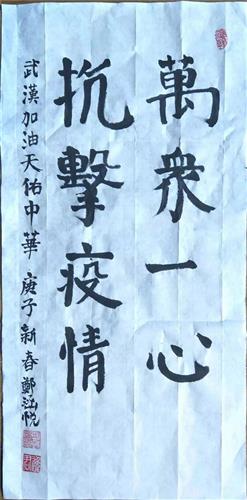 萬衆一心
抗擊疫情
武漢加油天佑中華 庚子新春鄭